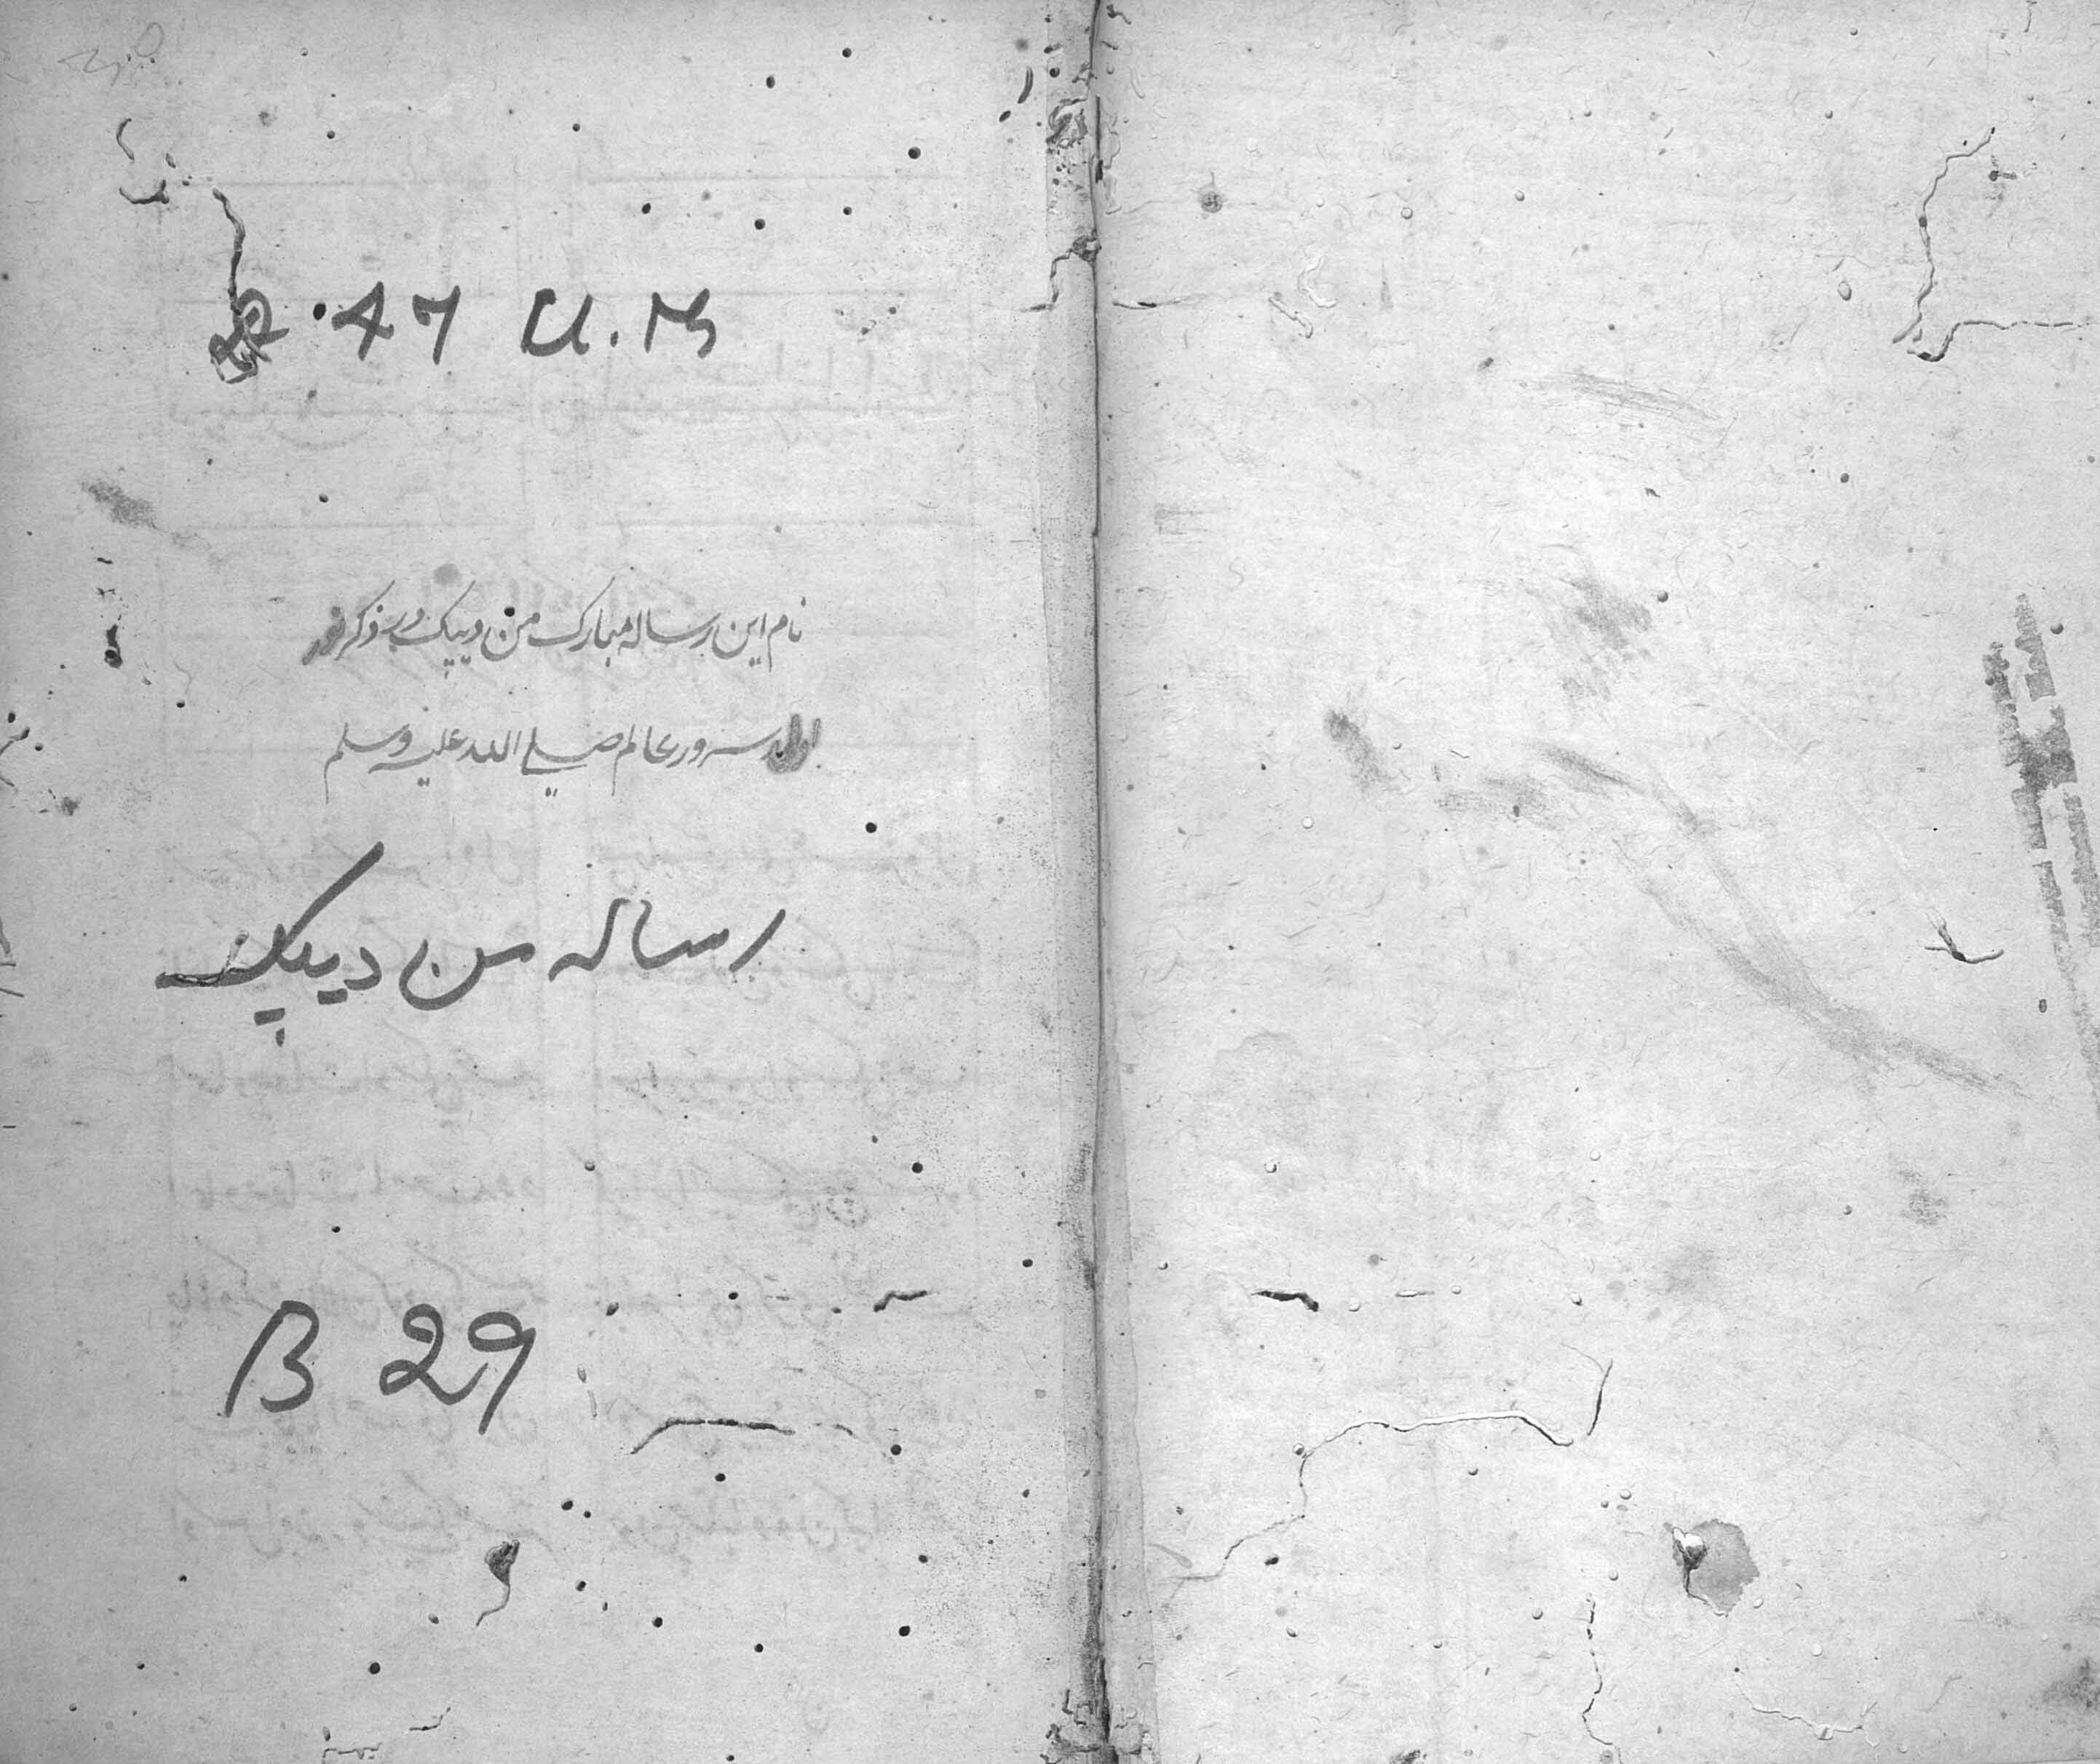 47 U.M
نام این رساله مبارک من دیپک در ذکر نور
سرور عالم صلے اللہ علیہ وسلم
رسالہ من دیپک
B 29